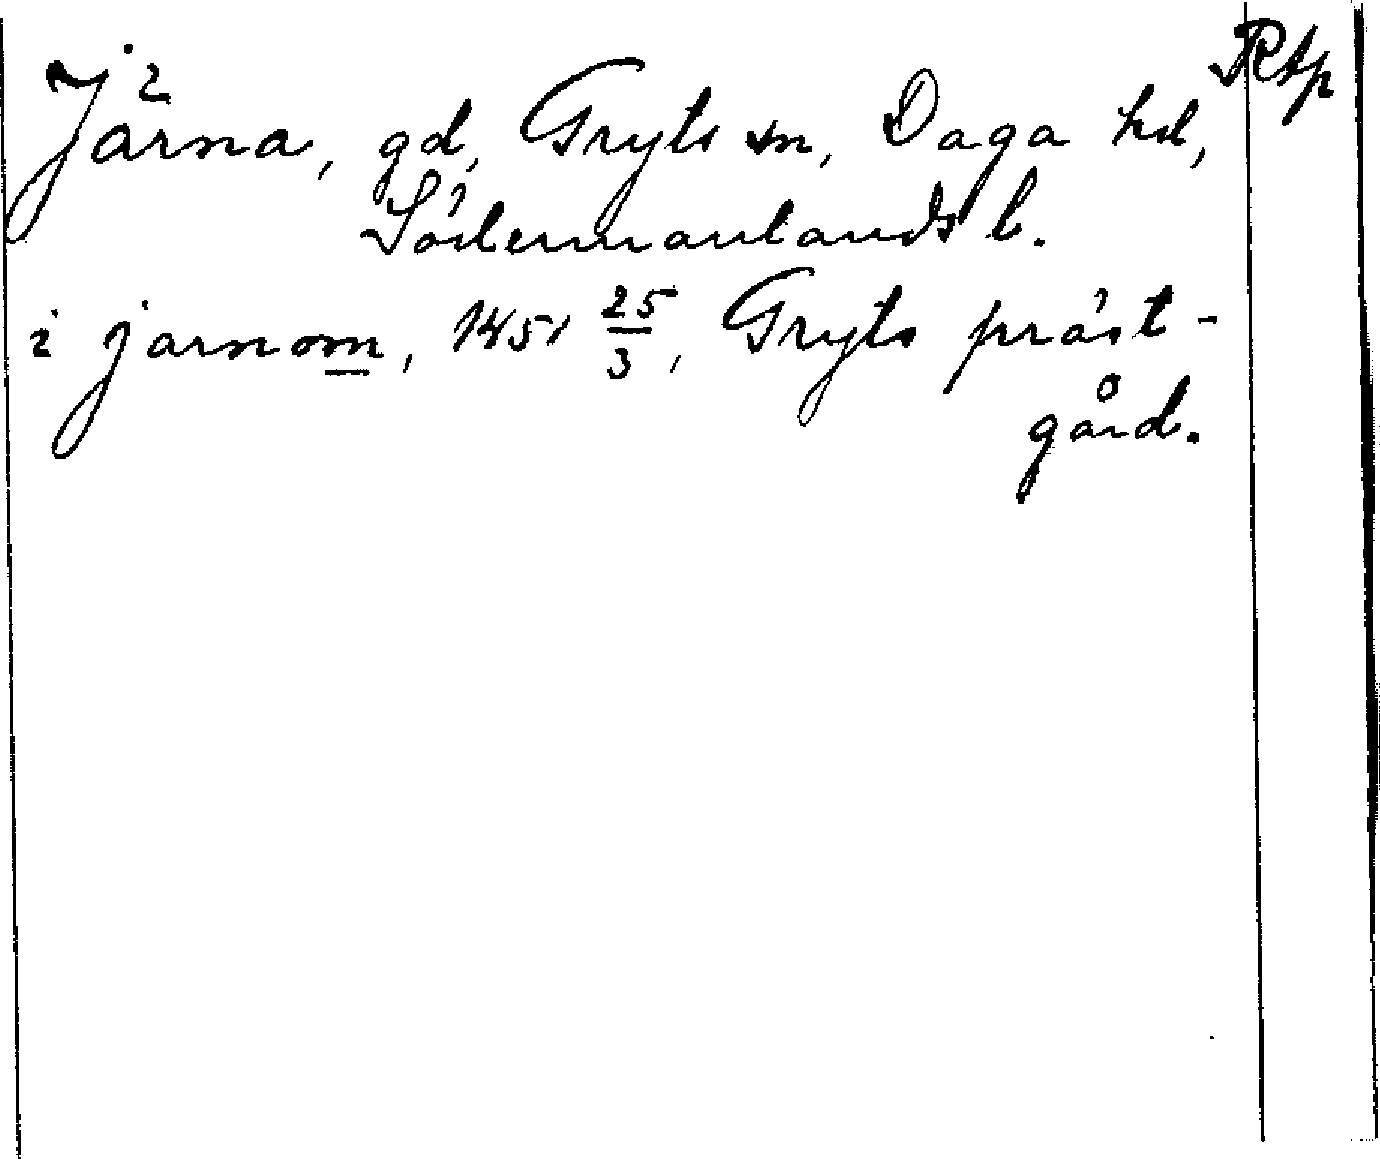 Rtp
Järna, gd, Gryts sn, Daga hd,
Södermanlands l.
i jarnom, 1451 25/3, Gryts präst-
gård.